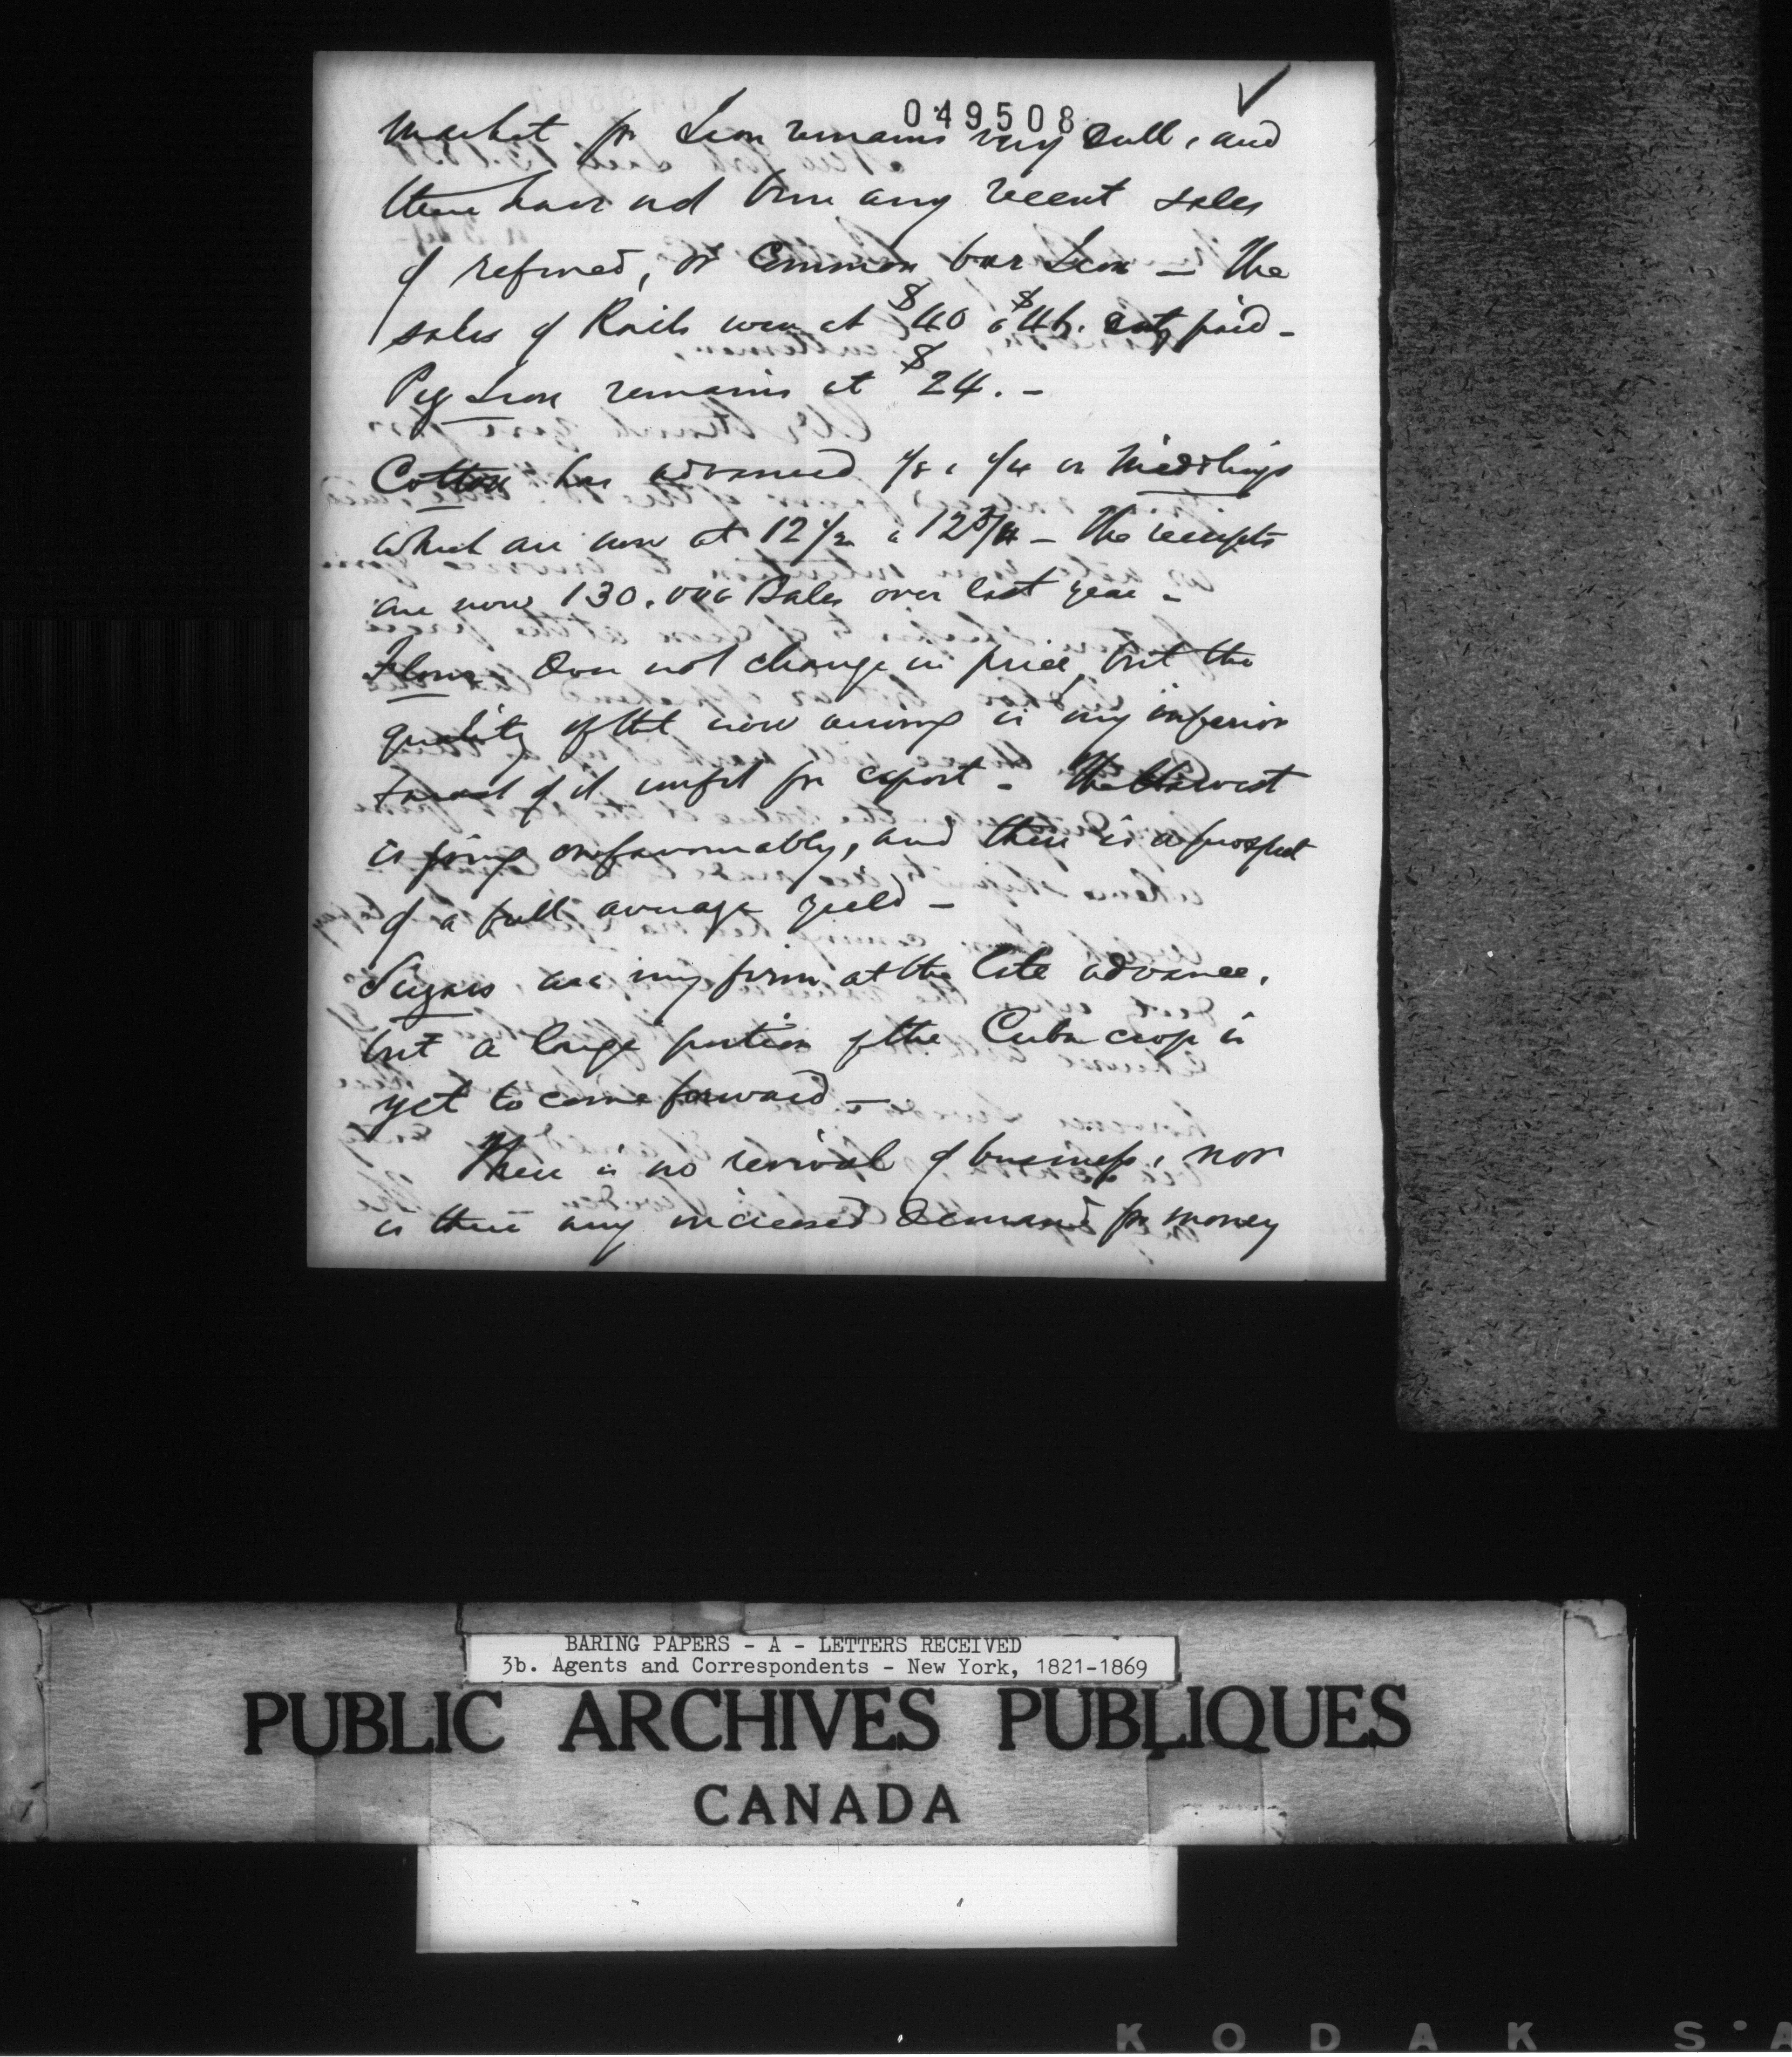 049508
market for Iron remains very dull, and
there have not been any recent sales
of refined, or Common bar Iron — The
sales of Rails were at $40 a $46. duty paid -
Pig Iron remains at $24. -
Cotton has advanced 1/8 a 1/4 on Middlings
which are now at 12 1/2 a 12 3/4 - The receipts
are now 130.000 Bales over last year -
Flour does not change in price, but the
quality of that now arriving is very inferior
& most of it unfit for export - The Harvest
is going on favourably, and there is a prospect
of a full average yield -
Sugars are very firm at the late advance,
but a large portion of the Cuba crop is
yet to come forward —
There is no revival of business, nor
is there any increased demand for money
BARING PAPERS - A - LETTERS RECEIVED
3b. Agents and Correspondents - New York, 1821-1869
PUBLIC ARCHIVES PUBLIQUES
CANADA
KODAK SA